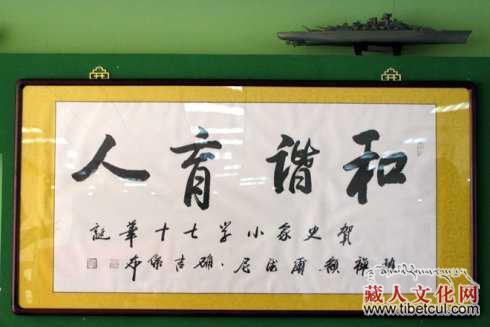 和諧育人
賀史家小学七十華誕
班禪額爾德尼·确吉傑布
藏人文化网
www.tibetcul.com